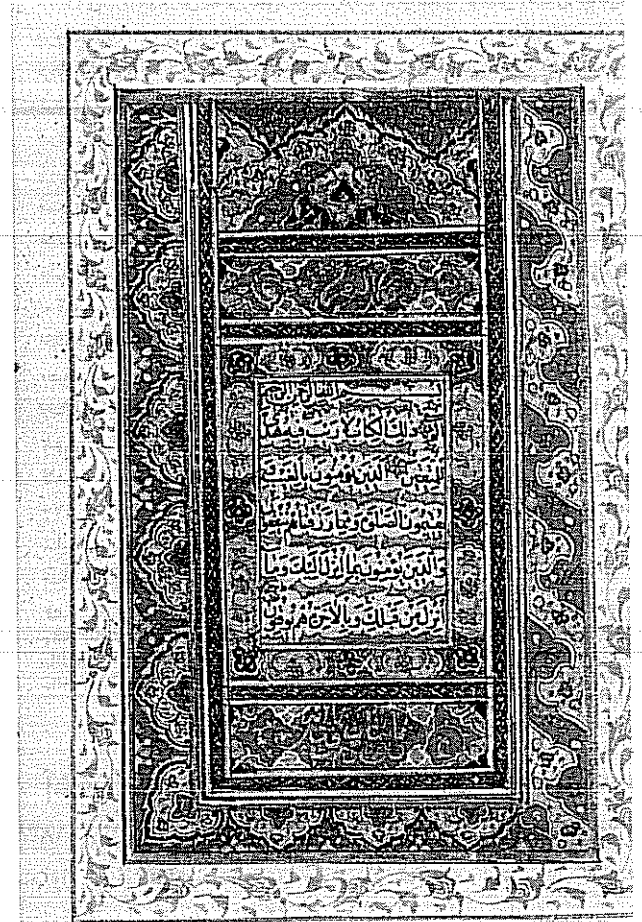 ذلك الكتاب لا ريب فيه هدى
للمتقين الذين يؤمنون بالغيب
ويقيمون الصلوة ومما رزقناهم ينفقون
والذين يؤمنون بما أنزل إليك وما
أنزل من قبلك وبالآخرة هم يوقنون